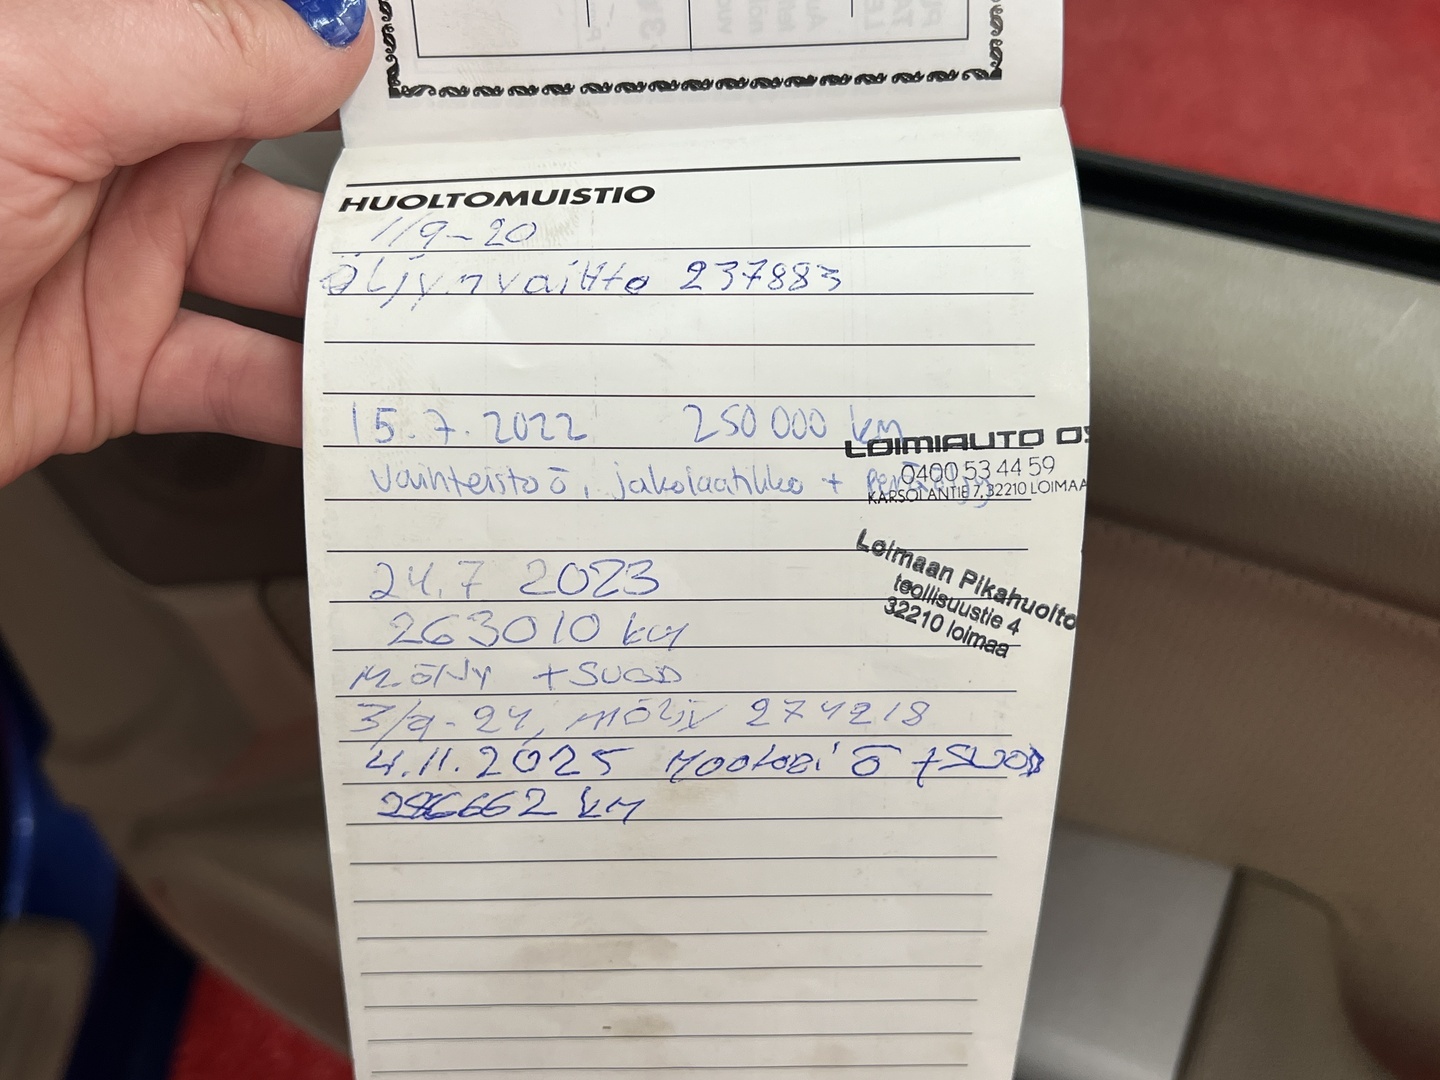 HUOLTOMUISTIO
1/9-20
Öljynvaihto 237883
15.7.2022 250 000 km
LOIMIAUTO OY
0400 53 44 59
Vaihteistoö, jakolaatikko + peräöljy
KARSOLANTIE 7, 32210 LOIMAA
Loimaan Pikahuolto
teollisuustie 4
32210 loimaa
24.7 2023
263010 km
M.ÖLJY +SUOD
3/9-24, MÖLJY 274218
4.11.2025 Moottori ö +SUOD
286662 km